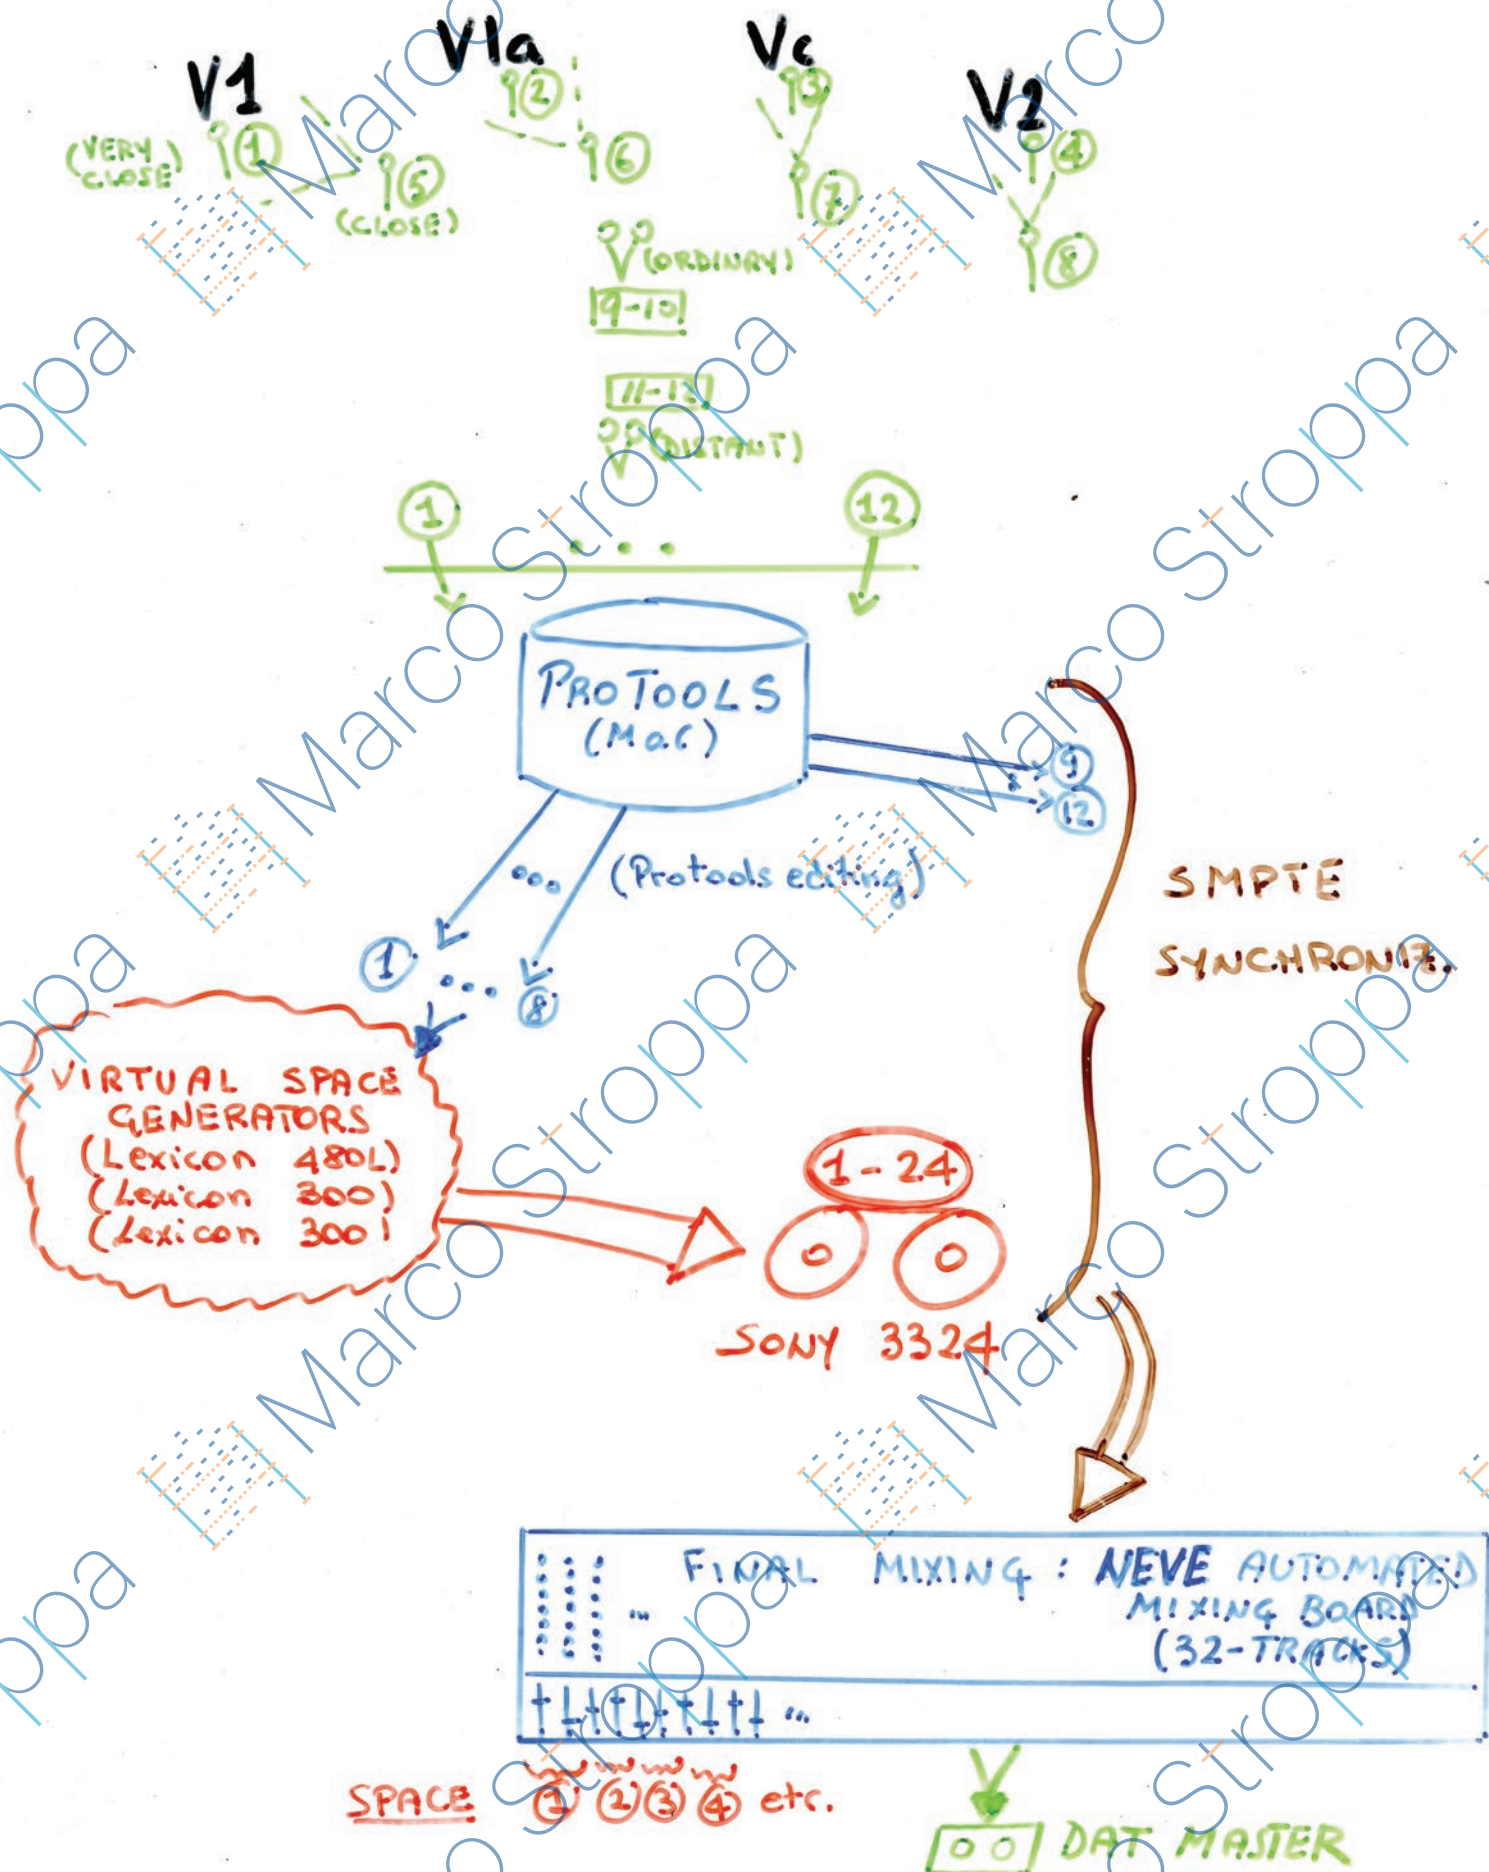 V1
Vla
Vc
V2
(VERY CLOSE)
1
2
3
4
5
(CLOSE)
6
7
8
(ORDINARY)
9-10
11-12
(DISTANT)
1
...
12
PROTOOLS
(Mac)
9
12
(Protools editing)
1
...
8
SMPTE
SYNCHRONIZ.
VIRTUAL SPACE
GENERATORS
(Lexicon 480L)
(Lexicon 300)
(Lexicon 300)
1-24
SONY 3324
FINAL MIXING: NEVE AUTOMATED
MIXING BOARD
(32-TRACKS)
...
...
SPACE 1 2 3 4 etc.
DAT MASTER
Marco Stroppa